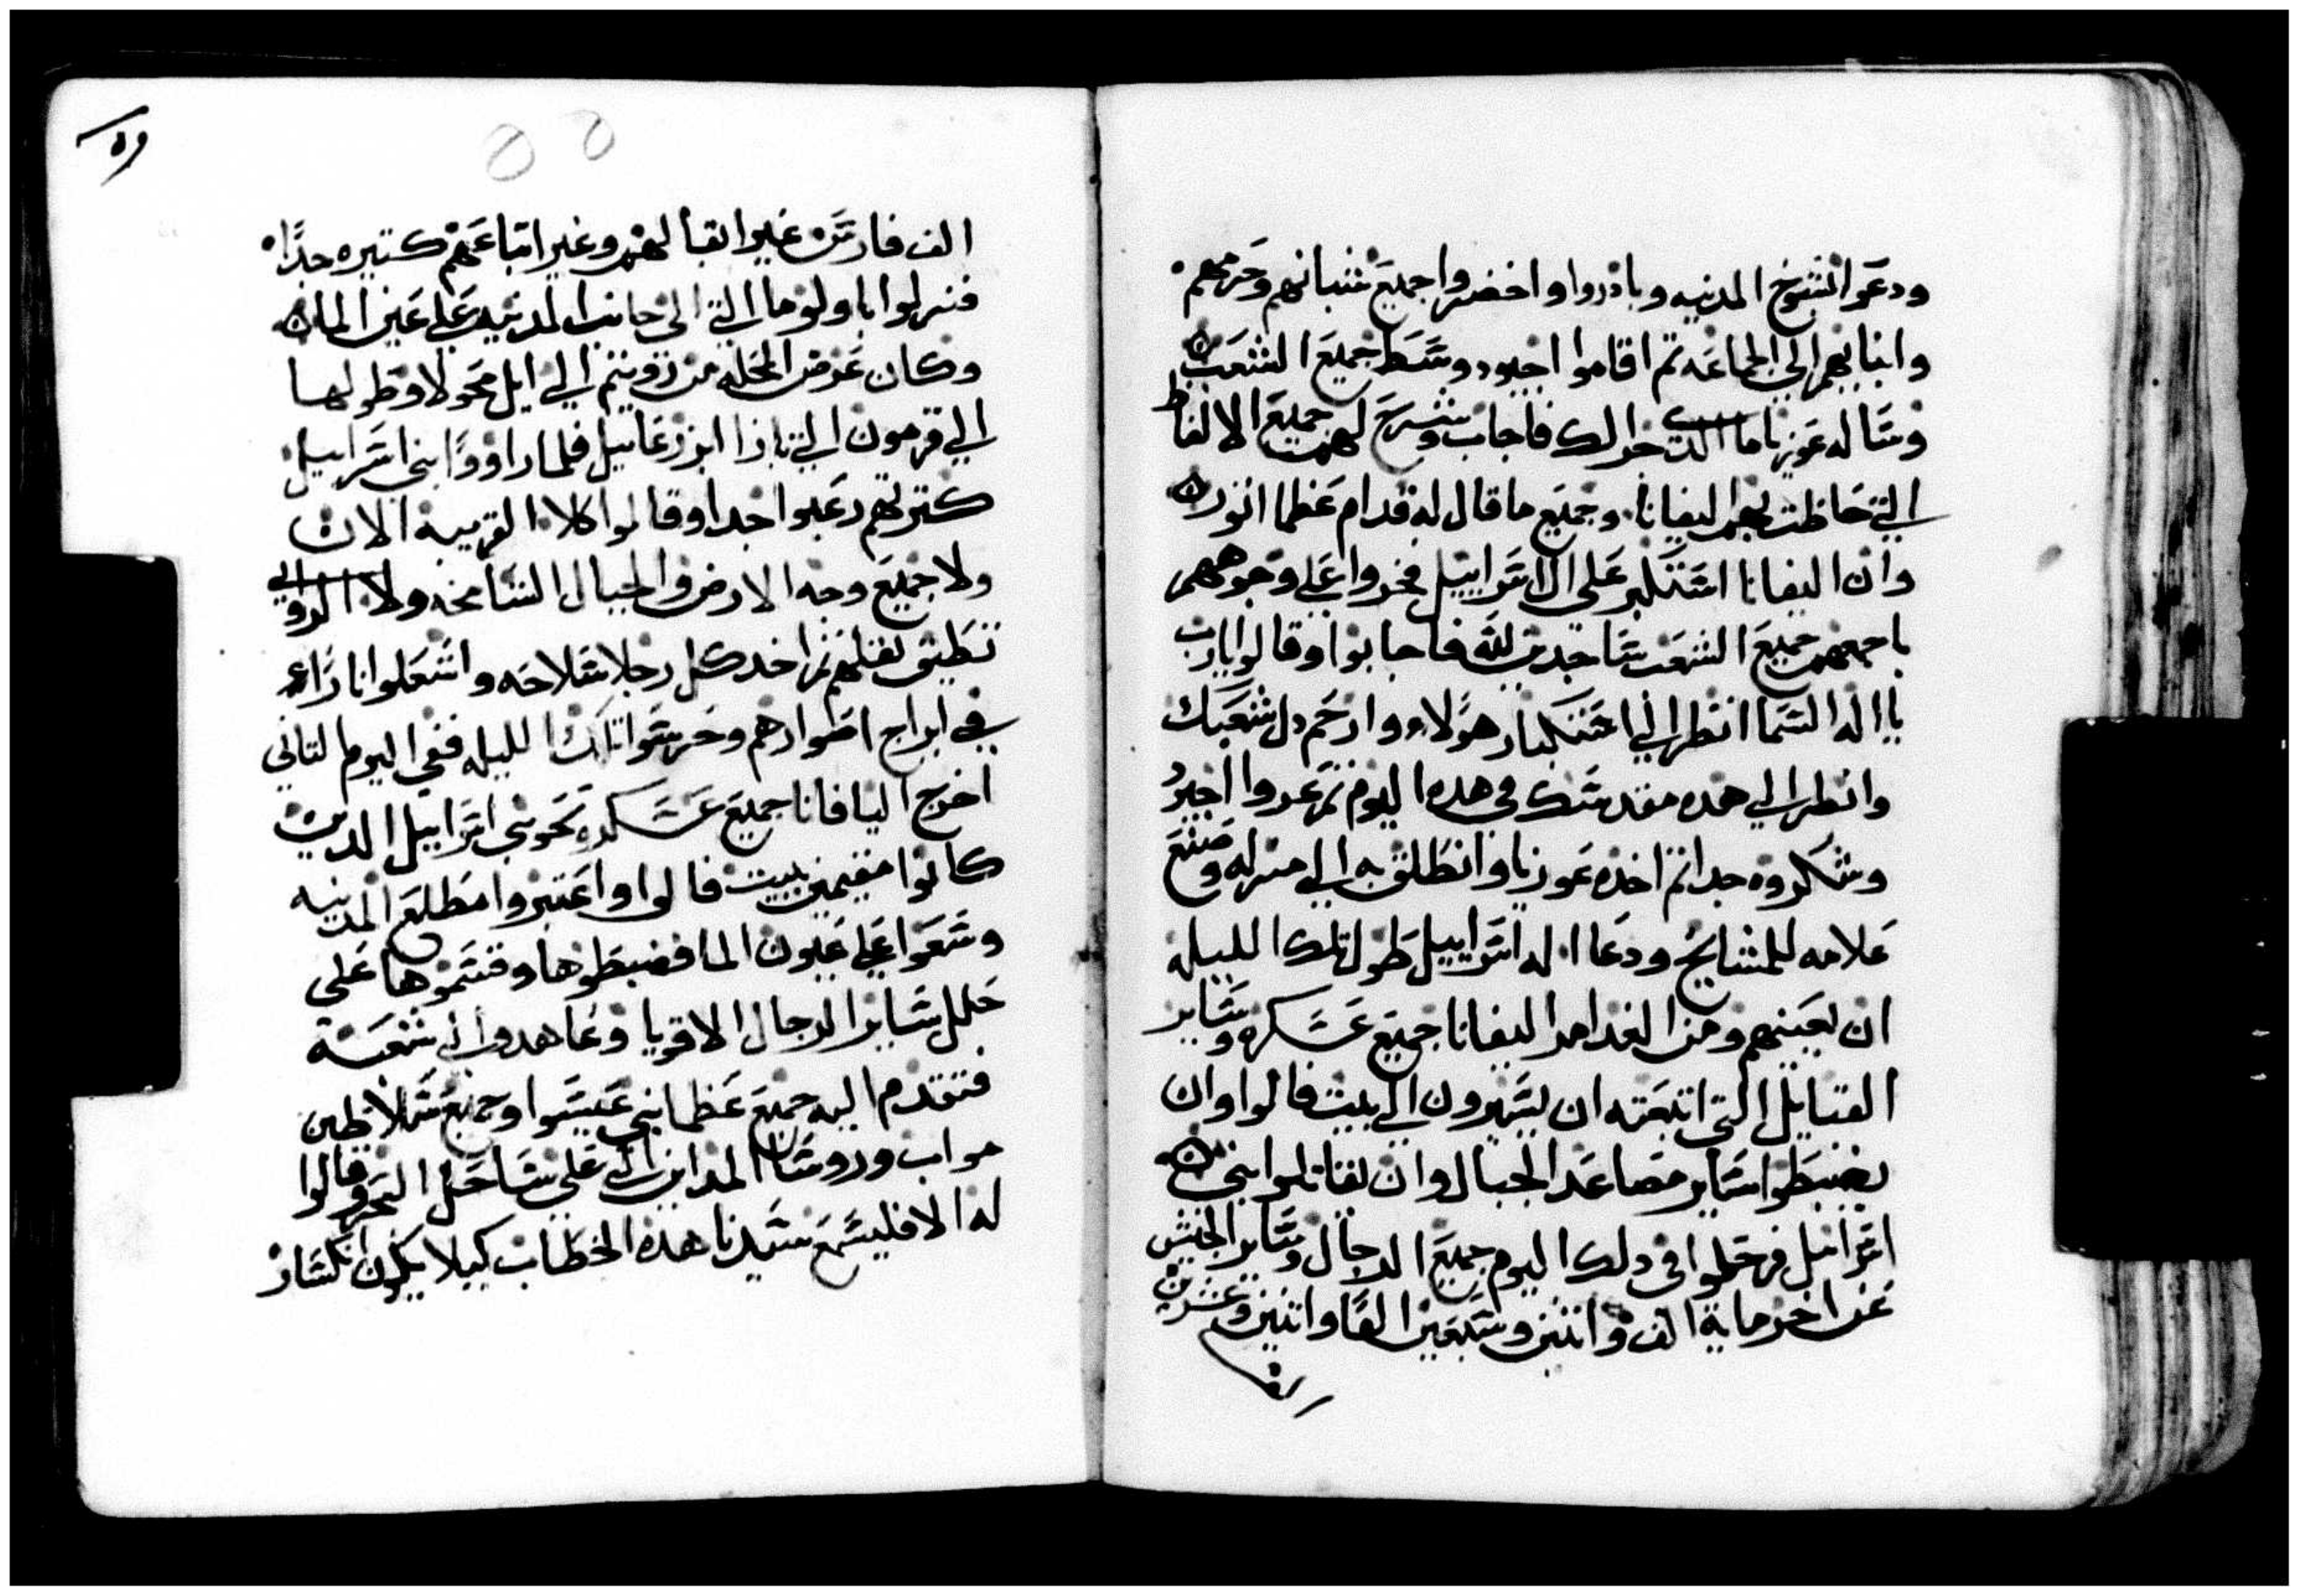 ودعوا شيوخ المدينه وبادروا واحضروا جميع شبانهم وحرمهم
وابنايهم الي الجماعه تم اقاموا احيور وسط جميع الشعب
وساله عوزيا ما الدي جرا لك فاجاب وشرح لهم جميع الالفاظ
التي خاطب بهم اليفانا وجميع ما قال له قدام عظما اتور
وان اليفانا استكبر علي ال اسراييل فخروا علي وجوههم
باجمعهم جميع الشعب ساجدين لله فاجابوا وقالوا يارب
يا اله السما انظر الي استكبار هولاء وارحم دل شعبك
وانظر الي هده مقدستك في هدا اليوم تم عزوا احيور
وشكروه جدا تم اخده عوزيا وانطلق به الي منزله وصنع
علامه للمشايخ ودعا اله اسراييل طول تلك الليله
ان يعينهم ومن الغد امر اليفانا جميع عسكره وساير
القبايل التي اتبعته ان يسيرون الي بيت فالوا وان
يضبطوا ساير مصاعد الجبال وان يقاتلوا بني
اسراييل فرحلوا في دلك اليوم جميع الرجال وساير الجيش
عن اخر ماية الف واتنين وسبعين الفا واتنين وعشرين
الف
٥٩
الف فارس غير اتقالهم وغير اتباعهم كتيره جدا
فنزلوا باولوما التي الي جانب المدينه علي عين الما
وكان عرض المحله من دوتيم الي ايل محولا وطولها
الي قرمون التي بازا ابزرعاييل فلما راووا بني اسراييل
كترتهم رعبوا جدا وقالوا كلا القريبه الان
ولا جميع وجه الارض والجبال الشامخه ولا الروابي
تطيق تقلهم تم اخد كل رجلا سلاحه واشعلوا نارا
في ابراج اصوارهم وحرسوا تلك الليله ففي اليوم التاني
اخرج اليافانا جميع عسكره نحو بني اسراييل الدين
كانوا مقيمين ببيت فالوا واعتبروا مطلع المدينه
وسعوا علي عيون الما فضبطوها وقسموها علي
حلل ساير الرجال الاقويا وعاهدوا الي شعبه
فتقدم اليه جميع عظما بني عيسوا وجميع سلاطين
مواب وروسا المداين التي علي ساحل البحر وقالوا
له الا فليسمع سيدنا هده الخطاب كيلا يكون انكسار